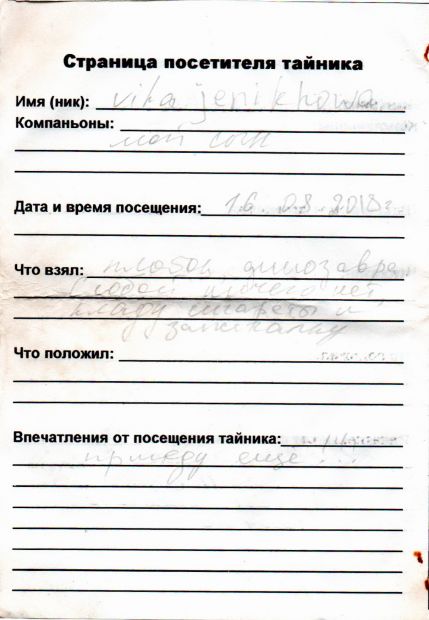 Страница посетителя тайника
Имя (ник): vika jenikhova
Компаньоны:
мой сын
Дата и время посещения: 16.08.2018г
Что взял: динозавра
С собой ничего нет,
кладу сигареты и
зажигалку
Что положил:
Впечатления от посещения тайника:
приеду еще!!!